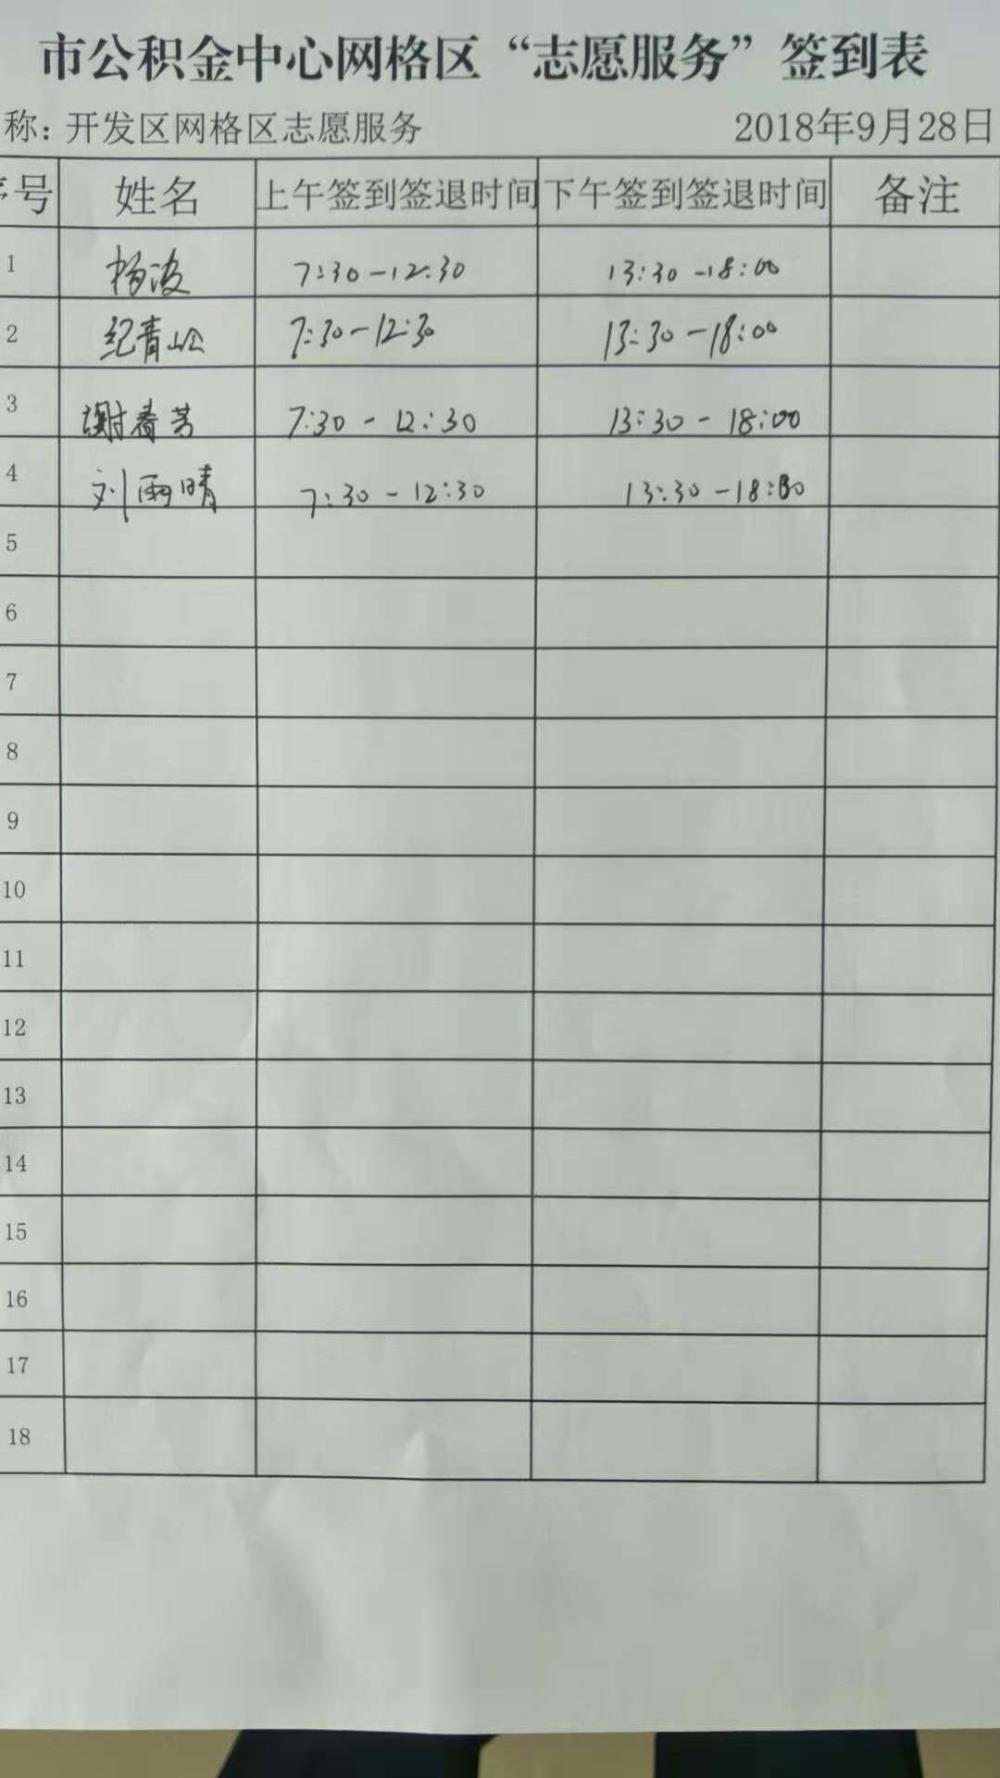 市公积金中心网格区“志愿服务”签到表
称：开发区网格区志愿服务 2018年9月28日
序号 姓名 上午签到签退时间 下午签到签退时间 备注
1 杨波 7:30-12:30 13:30-18:00
2 纪青松 7:30-12:30 13:30-18:00
3 谢春芳 7:30-12:30 13:30-18:00
4 刘雨晴 7:30-12:30 13:30-18:00
5
6
7
8
9
10
11
12
13
14
15
16
17
18